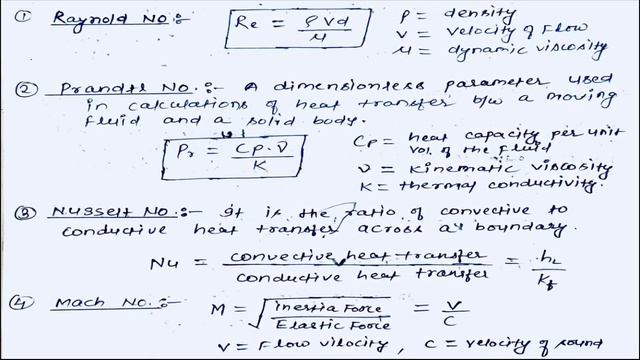 ① Raynold No:- Re = ρVd / μ ρ = density
V = velocity of flow
μ = dynamic viscosity
② Prandtl No.:- A dimensionless parameter used
in calculations of heat transfer b/w a moving
fluid and a solid body.
Pr = Cp.ν / K Cp = heat capacity per unit
vol. of the fluid
ν = Kinematic viscosity
K = thermal conductivity.
③ Nusselt No.:- It is the ratio of convective to
conductive heat transfer across a boundary.
Nu = convective heat transfer / conductive heat transfer = hL / Kf
④ Mach No.:- M = √(Inertia Force / Elastic Force) = V / C
V = Flow vilocity, C = velocity of sound